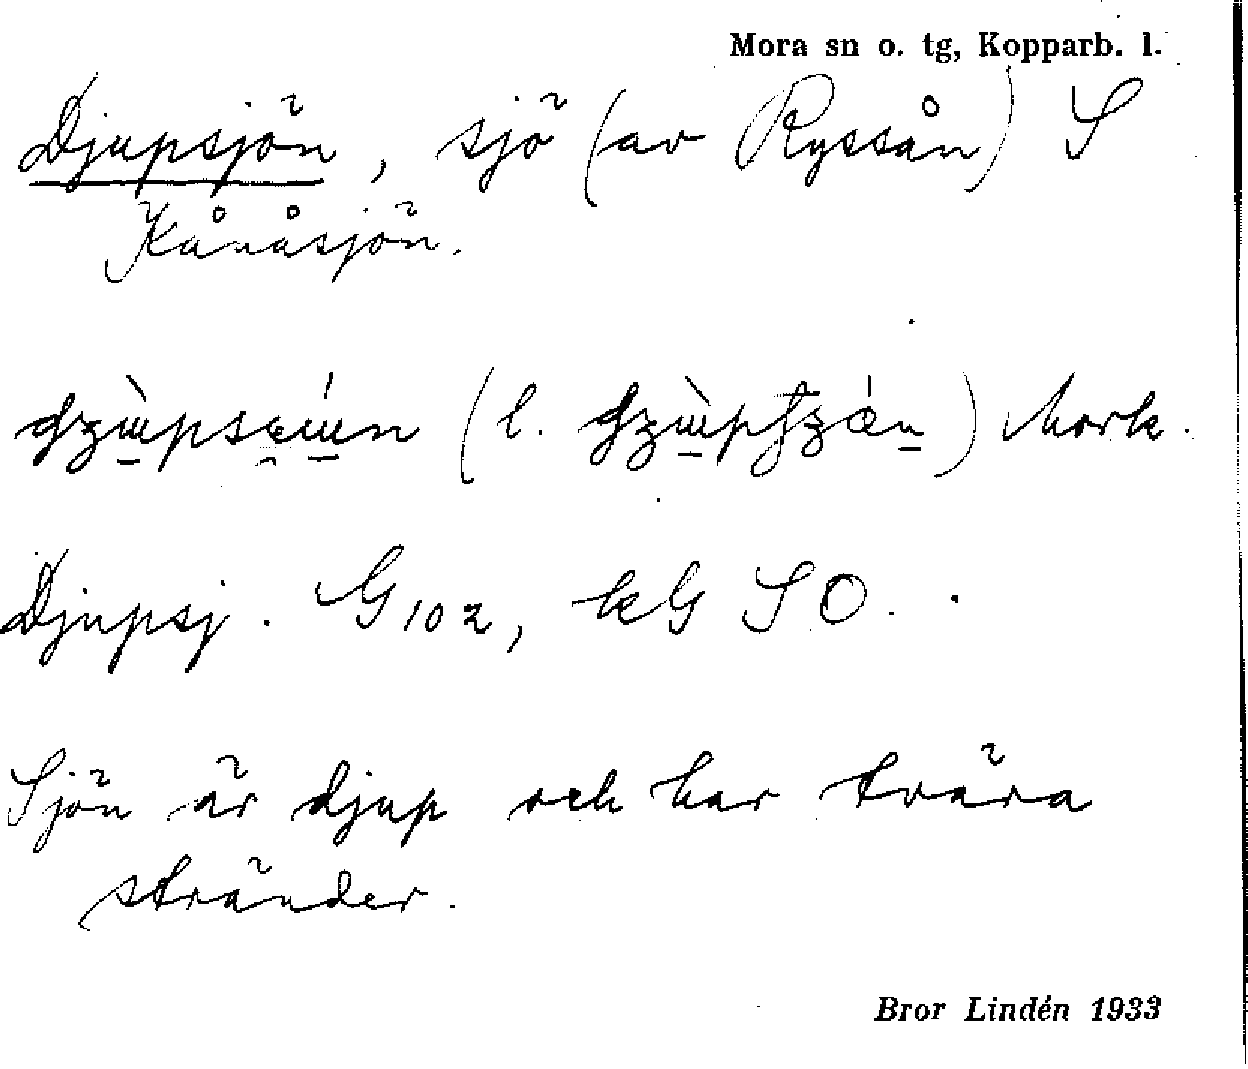 Mora sn o. tg, Kopparb. l.
Djupsjön, sjö (av Ryssån) S
Kånåsjön.
(l. ) Mork.
Djupsj. G 102, kG SO.
Sjön är djup och har tvära
stränder.
Bror Lindén 1933